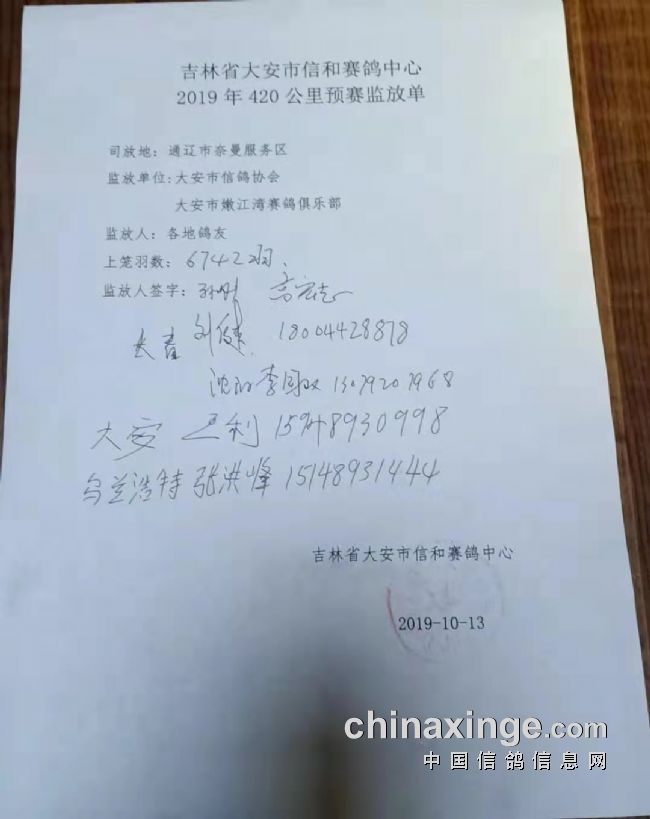 吉林省大安市信和赛鸽中心
2019 年 420 公里预赛监放单
司放地：通辽市奈曼服务区
监放单位:大安市信鸽协会
大安市嫩江湾赛鸽俱乐部
监放人：各地鸽友
上笼羽数：6742羽.
监放人签字：孙刚 高宏志
长春 刘健 18004428878
沈阳 李国 13079207968
大安 利 15948930998
乌兰浩特 张洪峰 15148931444
吉林省大安市信和赛鸽中心
2019-10-13
chinaxinge.com
中国信鸽信息网